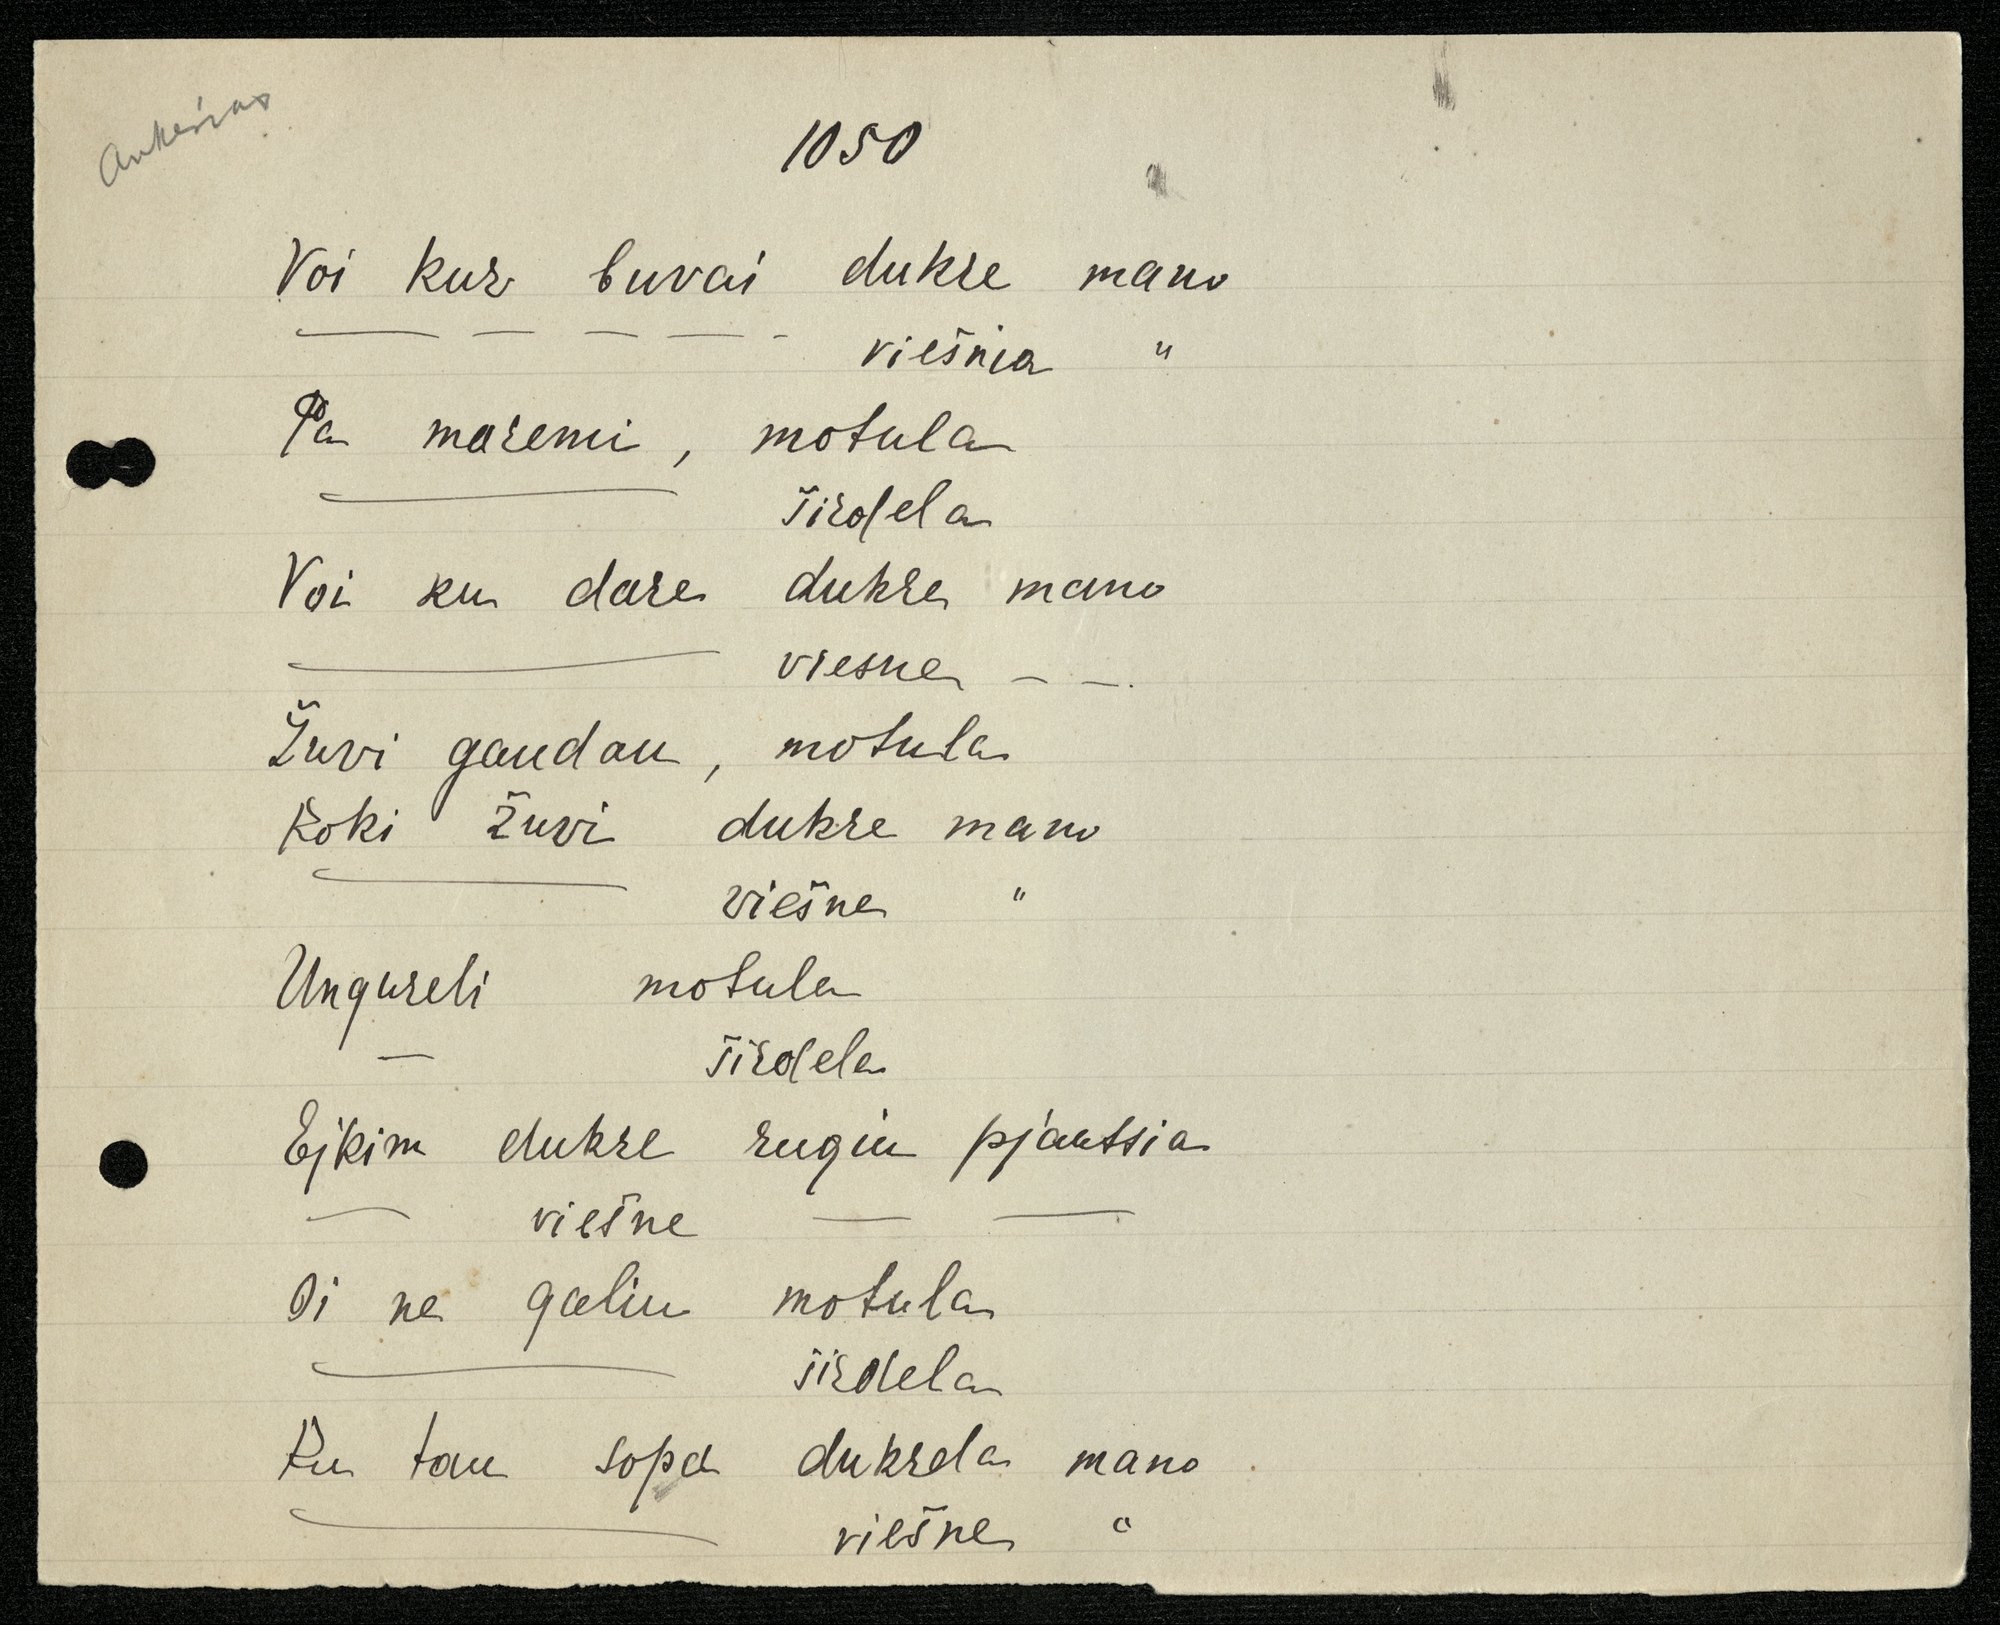 1050
Voi kur buvai dukre mano
— — — — - viešnia "
Pa maremi, motula
— širdela
Voi ku dare dukre mano
— viesne — —.
Žuvi gaudau, motula
Koki žuvi dukre mano
— viešne "
Ungureli motula
— širdela
Ejkim dukre rugiu pjautsia
— viešne — —
Oi ne galiu motula
— širdela
Ku tau sopa dukrela mano
— viešne "